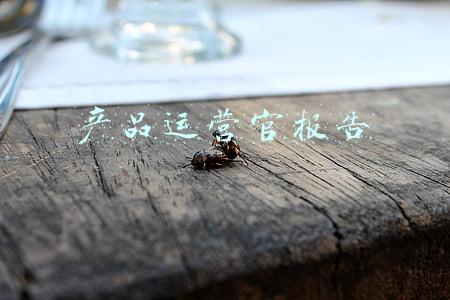 产品运营官报告